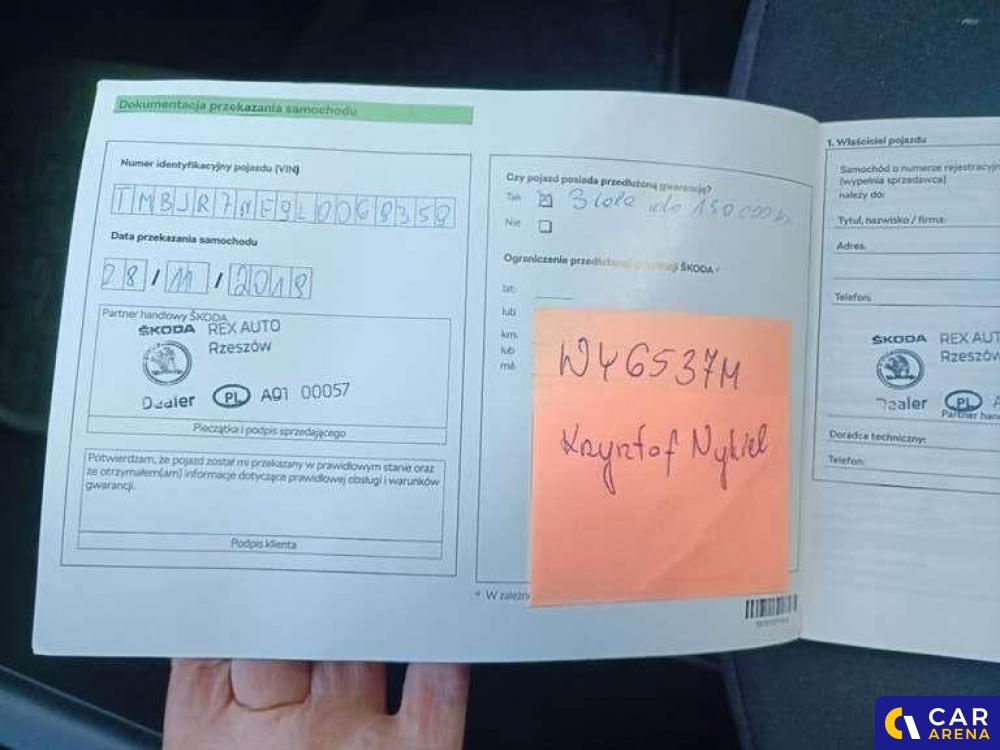 Dokumentacja przekazania samochodu
Numer identyfikacyjny pojazdu (VIN)
TMBJR7NE9L0068358
Data przekazania samochodu
28/11/2019
Partner handlowy ŠKODA
ŠKODA REX AUTO
Rzeszów
Dealer PL A01 00057
Pieczątka i podpis sprzedającego
Potwierdzam, że pojazd został mi przekazany w prawidłowym stanie oraz
że otrzymałem(am) informacje dotyczące prawidłowej obsługi i warunków
gwarancji.
Podpis klienta
Czy pojazd posiada przedłużoną gwarancję?
Tak 3 lata do 150 000
Nie
Ograniczenie przedłużonej gwarancji ŠKODA*
lat:
lub
km:
lub
WY6537M
Krzysztof Nykiel
* W
1. Właściciel pojazdu
Samochód o numerze
(wypełnia sprzedawca)
należy do:
Tytuł, nazwisko / firma:
Adres:
Telefon:
ŠKODA REX
Rzeszów
Dealer PL
Partner
Doradca techniczny:
Telefon:
CAR
ARENA